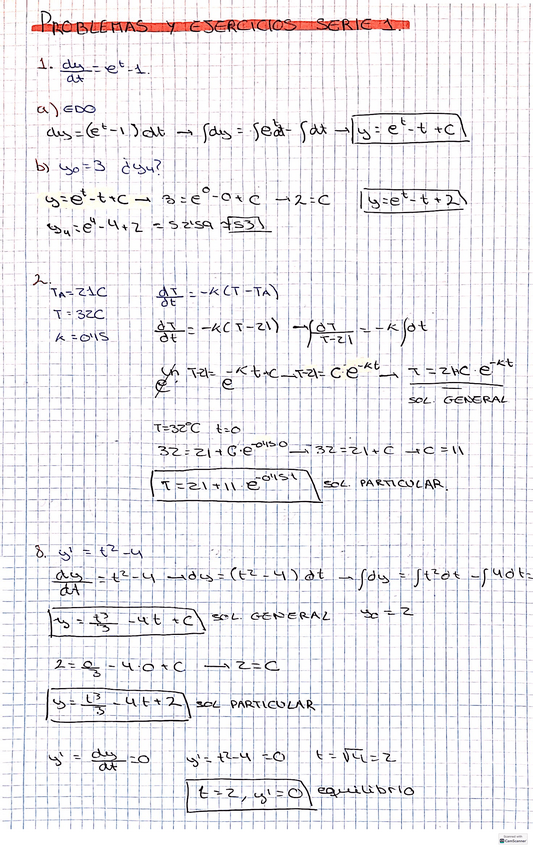 PROBLEMAS Y EJERCICIOS SERIE 1.
1. dy/dt = e^t - 1.
a) EDO
dy = (e^t - 1) dt → ∫dy = ∫e^t dt - ∫dt → y = e^t - t + C
b) y₀ = 3 ¿y₄?
y = e^t - t + C → 3 = e^0 - 0 + C → 2 = C y = e^t - t + 2
y₄ = e^4 - 4 + 2 = 52'59 53
2.
TA = 21C dT/dt = -K(T - TA)
T = 32C dT/dt = -K(T - 21) → ∫dT/T-21 = -K∫dt
K = 0'15
T-21 = e^-Kt+C → T-21 = C·e^-Kt → T = 21+C·e^-Kt
SOL. GENERAL
T = 32°C t = 0
32 = 21 + C·e^-0'15·0 → 32 = 21 + C → C = 11
T = 21 + 11·e^-0'15t SOL. PARTICULAR.
8. y' = t² - 4
dy/dt = t² - 4 → dy = (t² - 4) dt → ∫dy = ∫t²dt - ∫4dt =
y = t³/3 - 4t + C SOL. GENERAL y₀ = 2
2 = 0/3 - 4·0 + C → 2 = C
y = t³/3 - 4t + 2 SOL PARTICULAR
y' = dy/dt = 0 y' = t² - 4 = 0 t = √4 = 2
t = 2, y' = 0 equilibrio
CamScanner